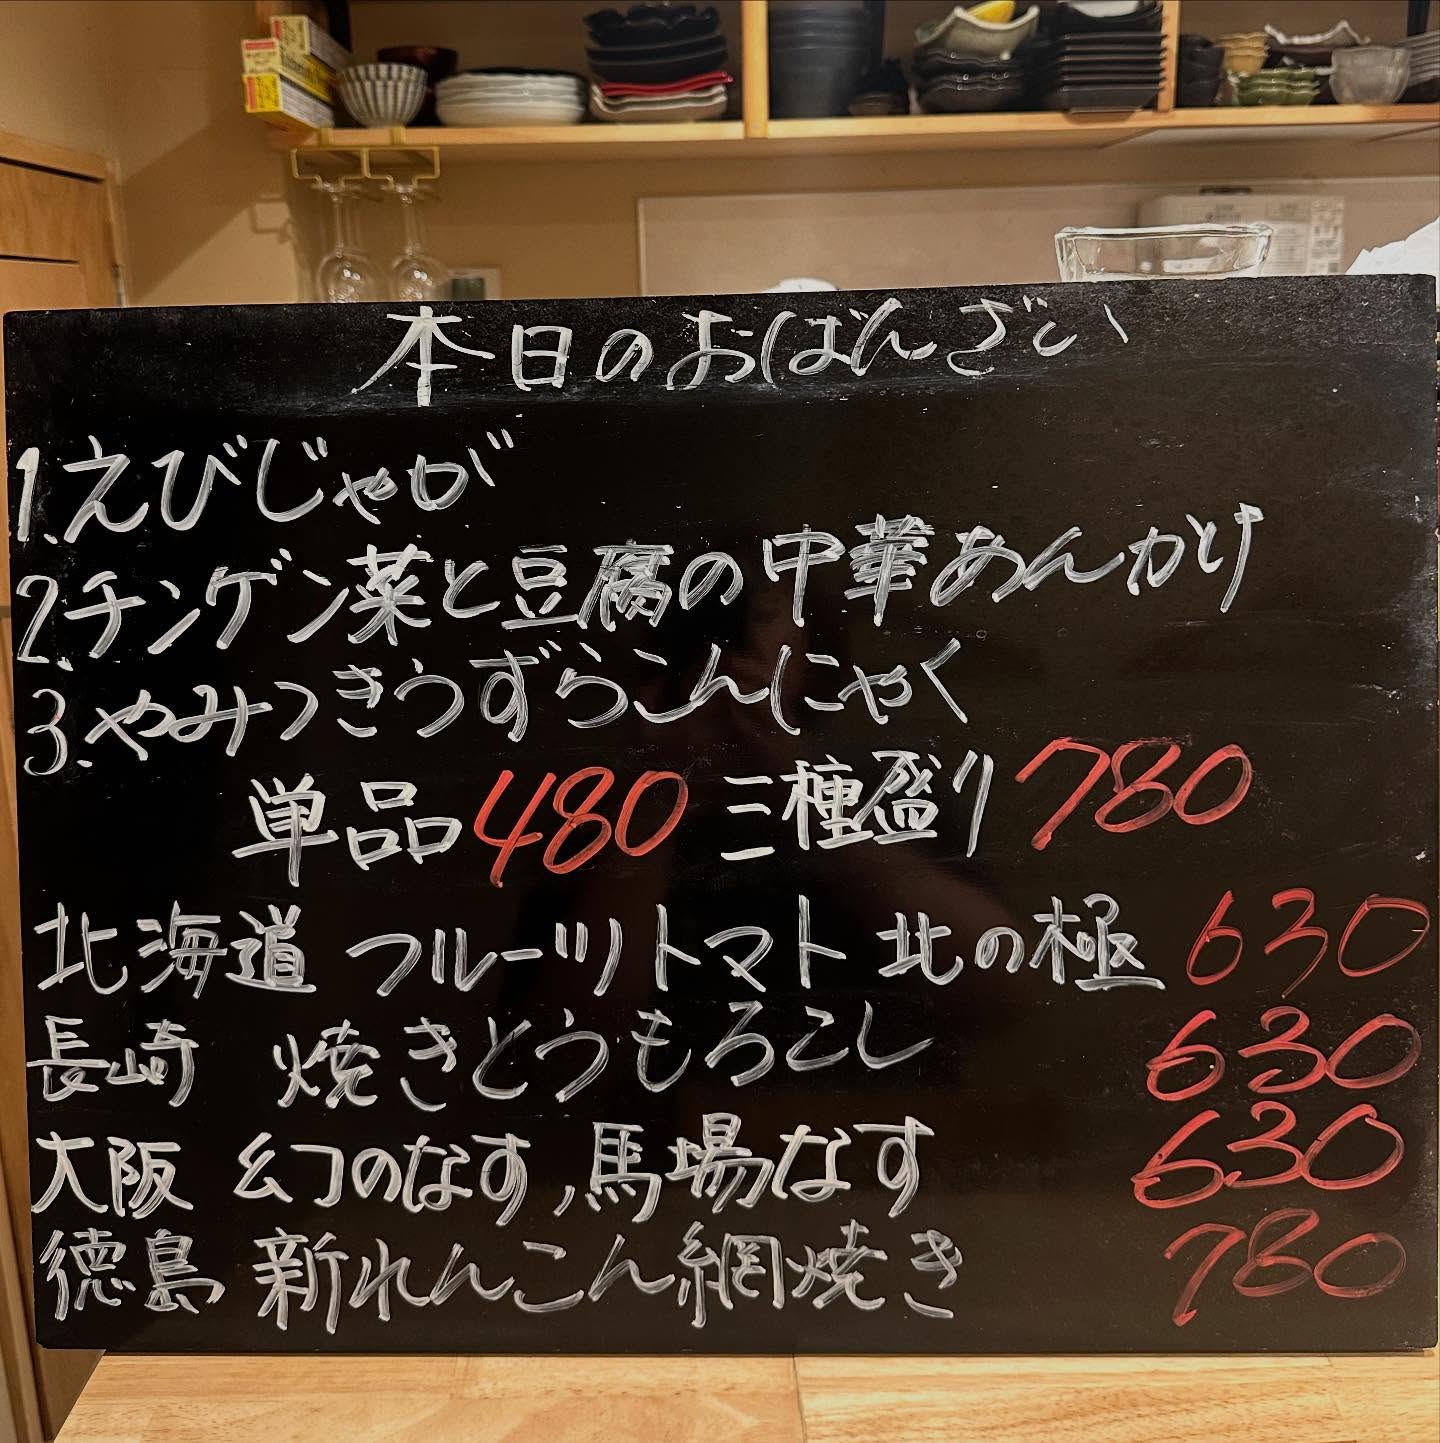 本日のおばんざい
1.えびじゃが
2.チンゲン菜と豆腐の中華あんかけ
3.やみつきうずらこんにゃく
単品480 三種盛り780
北海道 フルーツトマト 北の極 630
長崎 焼きとうもろこし 630
大阪 幻のなす、馬場なす 630
徳島 新れんこん網焼き 780